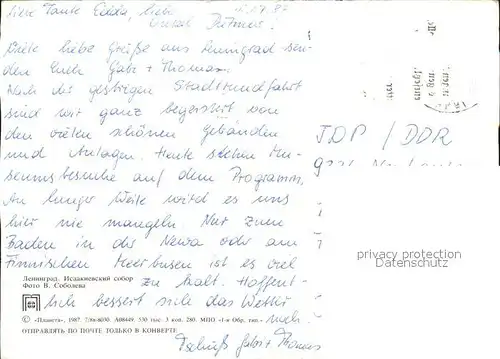 Liebe Tante Edda, liebe
Dietmar!
Viele liebe Grüße aus Leningrad sen-
den Euch Gabi + Thomas.
Nach der gestrigen Stadtrundfahrt
sind wir ganz begeistert von
den vielen schönen Gebäuden
und Anlagen. Heute stehen Mu-
seumsbesuche auf dem Programm.
An langer Weile wird es uns
hier nie mangeln. Nur zum
Baden in der Newa oder am
Finnischen Meerbusen ist es viel
zu kalt. Hoffent-
lich bessert sich das Wetter
noch.
Tschüß Gabi + Thomas
ГДР / DDR
privacy protection
Datenschutz
Ленинград. Исаакиевский собор
Фото В. Соболева
© «Планета», 1987. 7/86-4030. А08449. 530 тыс. 3 коп. 280. МПО «1-я Обр. тип.»
ОТПРАВЛЯТЬ ПО ПОЧТЕ ТОЛЬКО В КОНВЕРТЕ